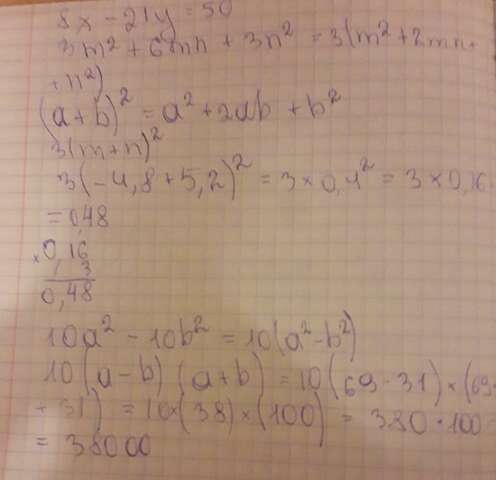 8x - 21y = 50
3m² + 6mn + 3n² = 3(m² + 2mn +
+ n²)
(a+b)² = a² + 2ab + b²
3(m+n)²
3(-4,8 + 5,2)² = 3 × 0,4² = 3 × 0,16
= 0,48
× 0,16
3
0,48
10a² - 10b² = 10(a² - b²)
10(a-b)(a+b) = 10(69-31)×(69
+ 31) = 10×(38)×(100) = 380·100
= 38000